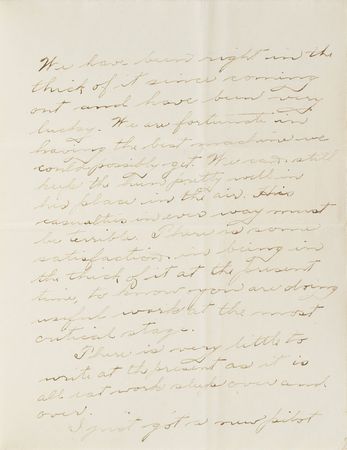 We have been right in the
thick of it since coming
out and have been very
lucky. We are fortunate in
having the best machine we
could possible get. We can still
the hun pretty well in
his place in the air. His
casualties in ever way must
be terrible. There is some
satisfaction in being in
the thick of it at the present
time, to know you are doing
useful work at the most
critical stage.
There is very little to
write at the present as it is
all just work sleep over and
over.
I just got a new pilot